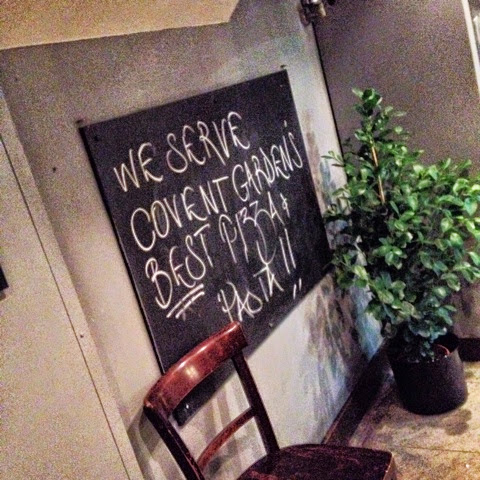 WE SERVE
COVENT GARDEN'S
BEST PIZZA &
PASTA !!